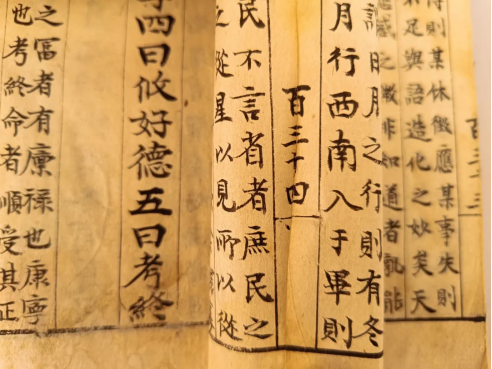 得則某休徵應某事失則
不足與語造化之妙矣天
之微非知道者孰能
日月之行則有冬
月行西南入于畢則
百三十四
民不言省者庶民之
之從星以見所以從
四曰攸好德五曰考終
之冨者有廩祿也康寧
也考終命者順受其正